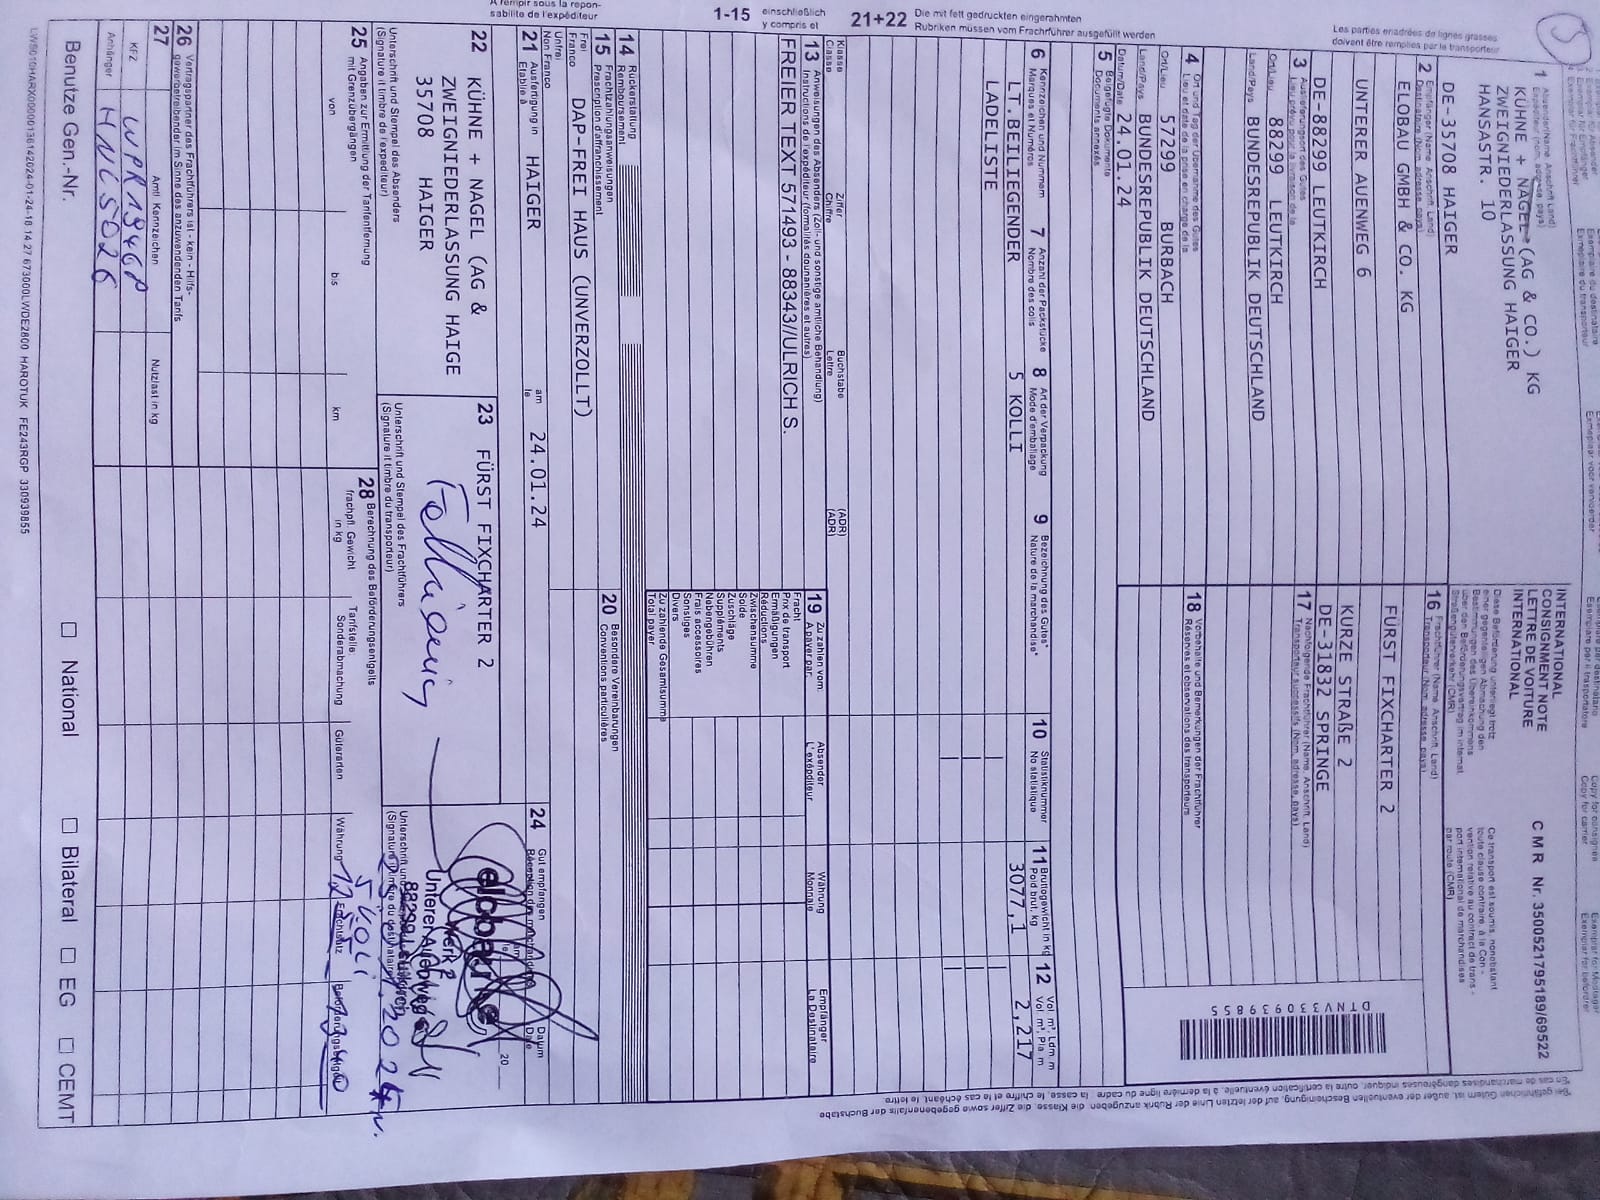 INTERNATIONAL
CONSIGNMENT NOTE
LETTRE DE VOITURE
INTERNATIONAL
CMR Nr. 35005217951 89/69522
1 Absender (Name, Anschrift, Land)
KÜHNE + NAGEL (AG & CO.) KG
ZWEIGNIEDERLASSUNG HAIGER
HANSASTR. 10
DE-35708 HAIGER
2 Empfänger (Name, Anschrift, Land)
Destinataire (Nom, adresse, pays)
ELOBAU GMBH & CO. KG
UNTERER AUENWEG 6
DE-88299 LEUTKIRCH
16 Frachtführer (Name, Anschrift, Land)
Transporteur (Nom, adresse, pays)
FÜRST FIXCHARTER 2
KURZE STRAßE 2
DE-31832 SPRINGE
DTNV330939855
3 Auslieferungsort des Gutes
Lieu prévu pour la livraison de la
Ort/Lieu 88299 LEUTKIRCH
Land/Pays BUNDESREPUBLIK DEUTSCHLAND
17 Nachfolgende Frachtführer (Name, Anschrift, Land)
Transporteur successifs (Nom, adresse, pays)
4 Ort und Tag der Übernahme des Gutes
Lieu et date de la prise en charge de la
Ort/Lieu 57299 BURBACH
Land/Pays BUNDESREPUBLIK DEUTSCHLAND
Datum/Date 24.01.24
18 Vorbehalte und Bemerkungen der Frachtführer
Réserves et observations des transporteurs
5 Beigefügte Dokumente
Documents annexés
6 Kennzeichen und Nummern
Marques et Numéros
7 Anzahl der Packstücke
Nombre des colis
8 Art der Verpackung
Mode d'emballage
9 Bezeichnung des Gutes*
Nature de la marchandise*
10 Statistiknummer
No statistique
11 Bruttogewicht in kg
Poid brut, kg
12 Vol. m³, Ldm. m
Vol. m³, Pla. m
LT.BEILIEGENDER 5 KOLLI 3077,1 2,217
LADELISTE
Klasse Ziffer Buchstabe (ADR)
Classe Chiffre Lettre (ADR)
13 Anweisungen des Absenders (Zoll- und sonstige amtliche Behandlung)
Instructions de l'expéditeur (formalités douanières et autres)
FREIER TEXT 571493 - 88343//ULRICH S.
19 Zu zahlen vom:
A payer par:
Absender
L'expéditeur
Währung
Monnaie
Empfänger
Le Destinataire
Fracht
Prix de transport
Ermäßigungen
Réductions
Zwischensumme
Solde
Zuschläge
Suppléments
Nebengebühren
Frais accessoires
Sonstiges
Divers
Zu zahlende Gesamtsumme
Total payer
14 Rückerstattung
Remboursement
15 Frachtzahlungsanweisungen
Prescription d'affranchissement
Frei
Franco
DAP-FREI HAUS (UNVERZOLLT)
Unfrei
Non Franco
20 Besondere Vereinbarungen
Conventions particulières
21 Ausfertigung in
Etablie à
HAIGER
am
le
24.01.24
22 KÜHNE + NAGEL (AG &
ZWEIGNIEDERLASSUNG HAIGE
35708 HAIGER
Unterschrift und Stempel des Absenders
(Signature it timbre de l'expéditeur)
23 FÜRST FIXCHARTER 2
Unterschrift und Stempel des Frachtführers
(Signature it timbre du transporteur)
24 Gut empfangen
Datum
Date
20
elobau
Werk 2
Unterer Auenweg
5 Koli
25 Angaben zur Ermittlung der Tarifentfernung
mit Grenzübergängen
von bis km
28 Berechnung des Beförderungsentgelts
frachtpfl. Gewicht
in kg
Tarifstelle
Sonderabmachung
Güterarten
Währung
Frachtsatz
Beförderungsentgelt
26 Vertragspartner des Frachtführers ist - kein - Hilfs-
gewerbetreibender im Sinne des anzuwendenden Tarifs
27 Amtl. Kennzeichen Nutzlast in kg
KFZ
WPR1946P
Anhänger
Benutze Gen.-Nr.
☐ National ☐ Bilateral ☐ EG ☐ CEMT
1-15 einschließlich
y compris et
21+22 Die mit fett gedruckten eingerahmten
Rubriken müssen vom Frachtführer ausgefüllt werden
Les parties enadrées de lignes grasses
doivent être remplies par le transporteur